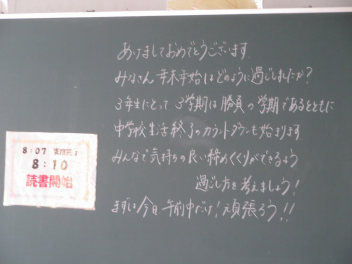 あけましておめでとうございます
みなさん 年末年始はどのように過ごしましたか?
3年生にとって 3学期は勝負の学期であるとともに
中学校生活終了のカウントダウンも始まります
みんなで気持ちの良い締めくくりができるよう
過ごし方を考えましょう!
まずは今日 午前中だけ! 頑張ろう!!
8:07
8:10
読書開始